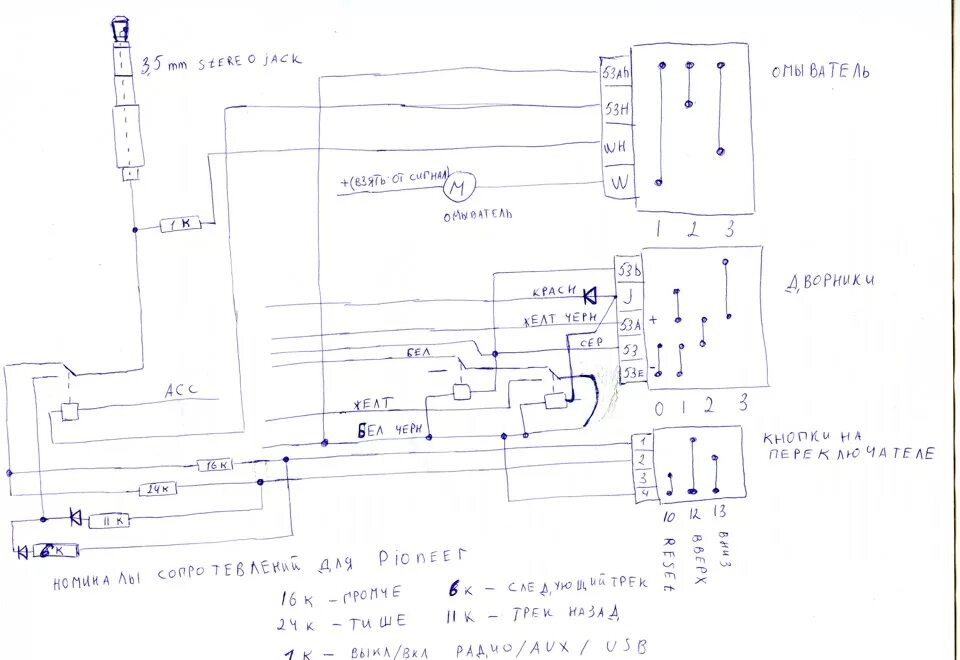 3,5 mm STEREO JACK
53Ah
ОМЫВАТЕЛЬ
53H
1К
WH
+(ВЗЯТЬ ОТ СИГНАЛ)
М
W
ОМЫВАТЕЛЬ
1 2 3
53b
ДВОРНИКИ
КРАСН
J
ЖЕЛТ ЧЕРН
53A
+
СЕР
53
БЕЛ
53E
-
АСС
ЖЕЛТ
0 1 2 3
БЕЛ ЧЕРН
1
КНОПКИ НА
ПЕРЕКЛЮЧАТЕЛЕ
2
16К
3
24К
4
10 12 13
11К
RESET
ВВЕРХ
ВНИЗ
6К
НОМИНАЛЫ СОПРОТЕВЛЕНИЙ ДЛЯ Pioneer
16К - ГРОМЧЕ 6К - СЛЕДУЮЩИЙ ТРЕК
24К - ТИШЕ 11К - ТРЕК НАЗАД
1К - ВЫКЛ/ВКЛ РАДИО/AUX / USB